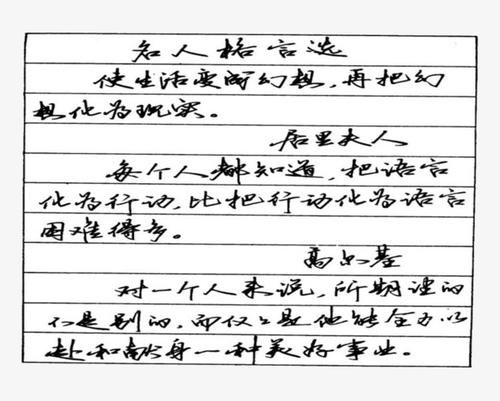 名人格言选
使生活变成幻想，再把幻
想化为现实。
居里夫人
每个人都知道，把语言
化为行动，比把行动化为语言
困难得多。
高尔基
对一个人来说，所期望的
不是别的，而仅仅是他能全力以
赴和献身一种美好事业。